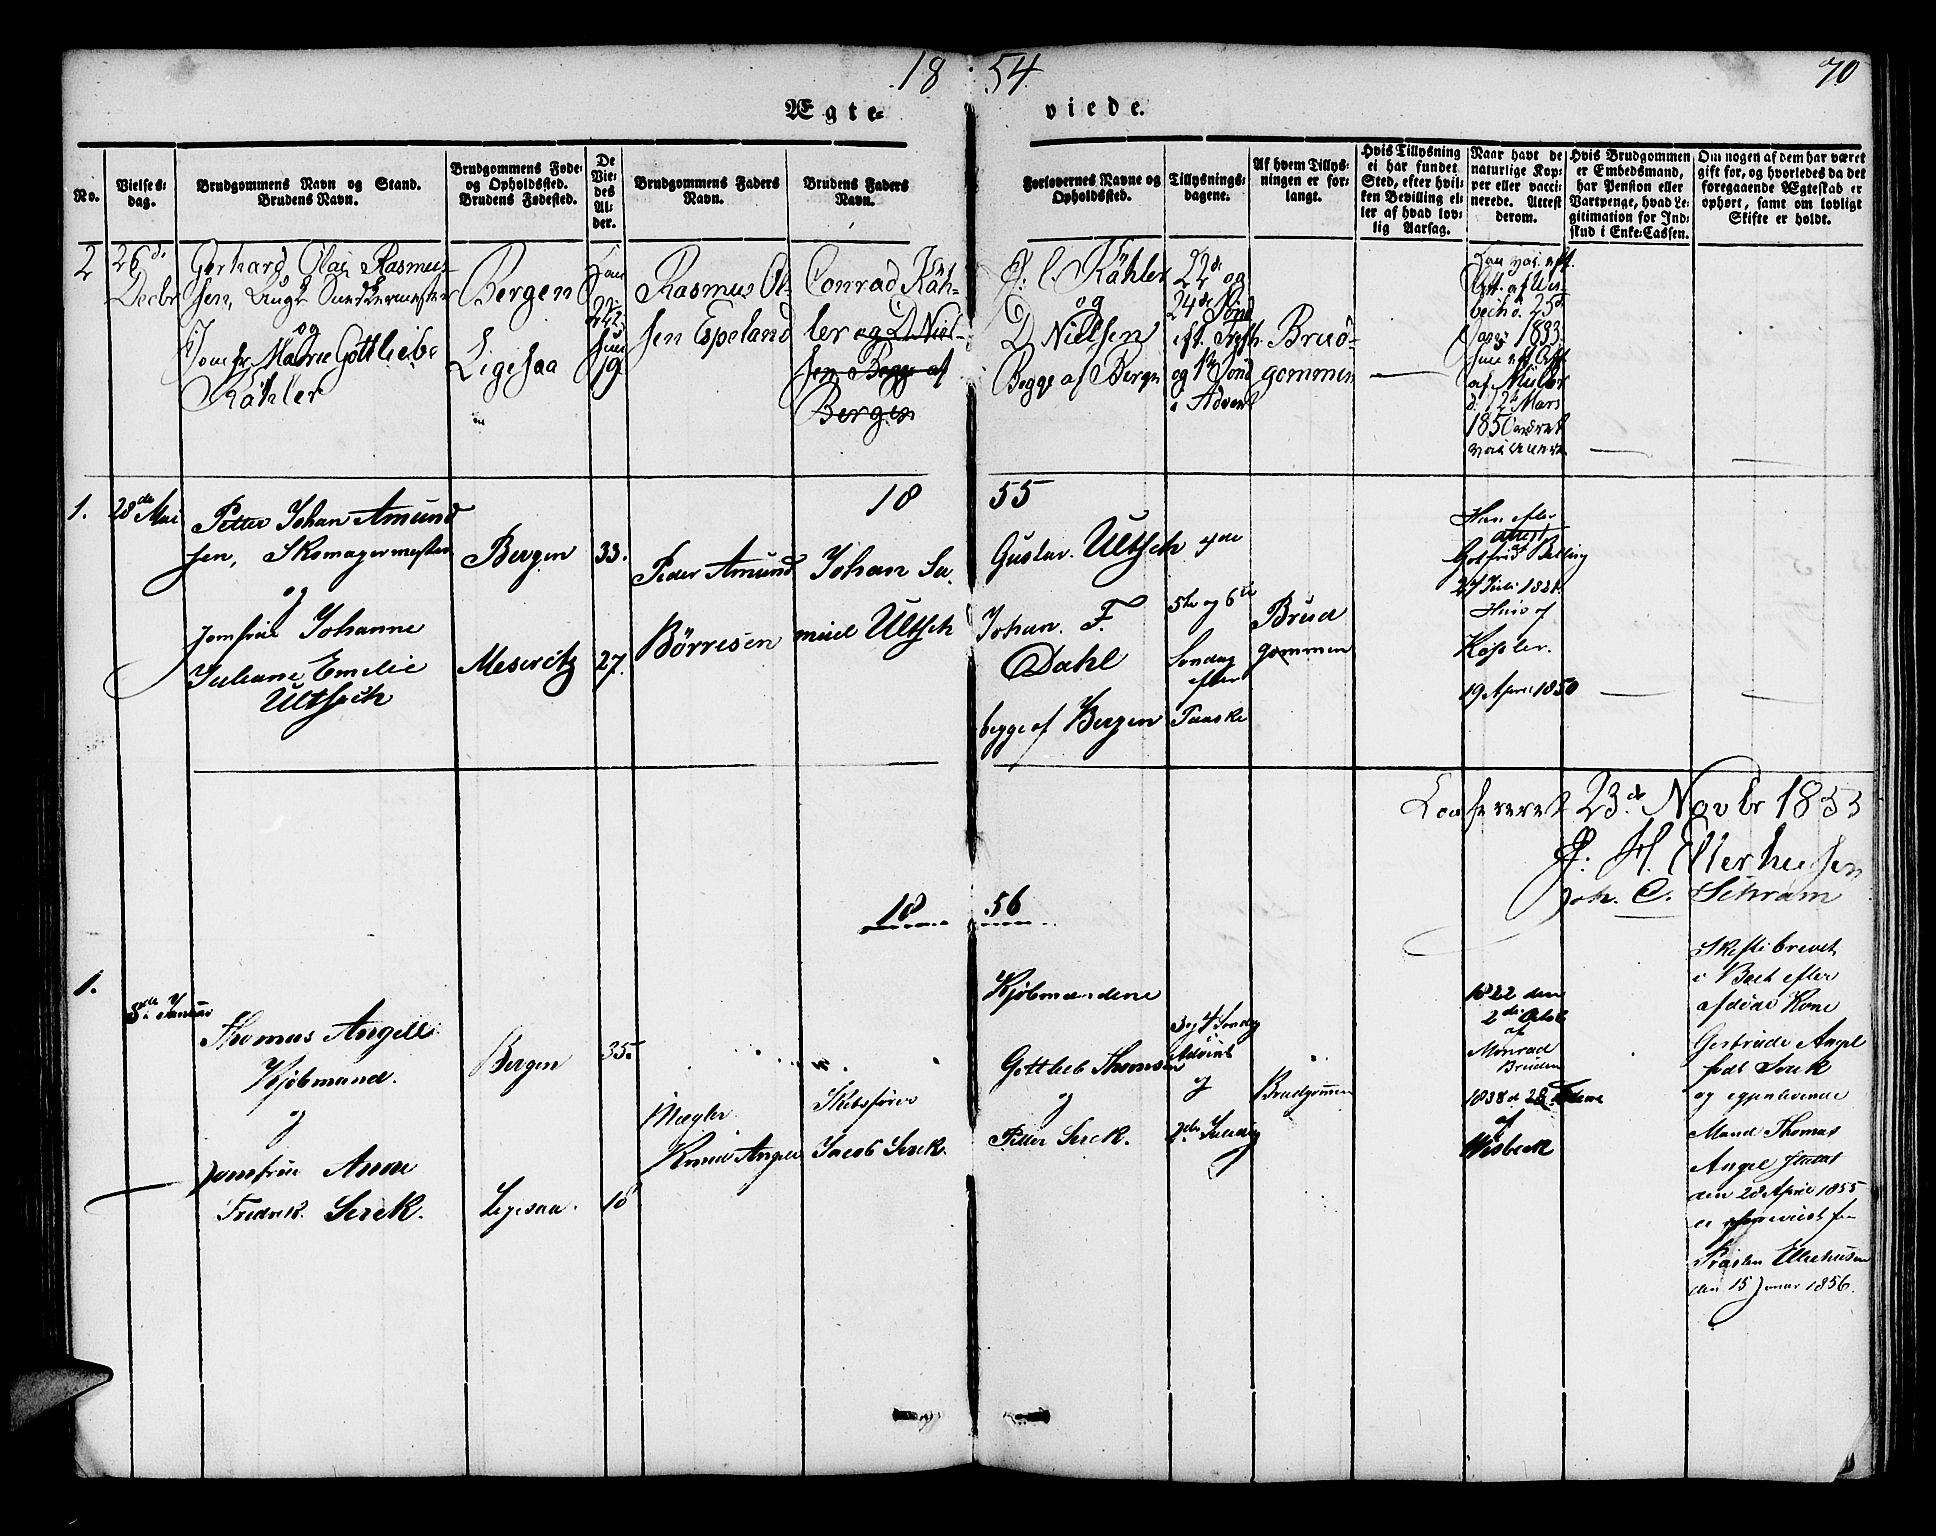 18 54.
70
Ægte= viede.
No.
Vielses=
dag.
Brudgommens Navn og Stand.
Brudens Navn.
Brudgommens Føde=
og Opholdssted.
Brudens Fødested.
De
Vie=
des
Al=
der.
Brudgommens Faders
Navn.
Brudens Faders
Navn.
Forlovernes Navne og
Opholdssted.
Tillysnings=
dagene.
Af hvem Tillys=
ningen er for=
langt.
Hvis Tillysning
ei har fundet
Sted, efter hvil=
ken Bevilling el=
ler af hvad lov=
lig Aarsag.
Naar havt de
naturlige Kop=
per eller vacci=
nerede. Attest
derom.
Hvis Brudgommen
er Embedsmand,
har Pension eller
Vartpenge, hvad Le=
gitimation for Ind=
skud i Enke=Cassen.
Om nogen af dem har været
gift før, og hvorledes da det
foregaaende Ægteskab er
ophørt, samt om lovligt
Skifte er holdt.
2
26d.
Decbr
Gerhard Olaj Rasmus-
sen, Ungk Snedkermester
og
Jomfr. Marie Gottliebe
Kähler
Bergen
Ligesaa
19
Rasmus Ol-
sen Espeland
Conrad Käh-
ler og D. Niel-
sen Begge af
Bergen
C. Kähler
og
D. Nielsen
Begge af Bergn
22de og
24de Sønd
eft. Tref.
og 1ste Sønd
i Advent
Brud-
gommen
25d.
1833
af
d. 12 Mars
1850
18 55
1.
28de Mai
Petter Johan Amund
sen, Skomagermester
og
Jomfrue Johanne
Juliane Emelie
Ultsch
Bergen
Meseritz
33.
27.
Peder Amund
Börresen
Johan Sa.
muel Ultsch
Gustav. Ultsch
Johan. F.
Dahl
begge af Bergen
4de
5te og 6te
Søndag
efter
Paaske
Brud
gommen
Han efter
attest
af
27 Juli
Hun af
19 April 1850
23de Novbr 1855
H. Ellerhusen
Joh. C. Schram
18 56
1.
8de Januar
Thomas Angell
Kjøbmand.
og
Jomfrue Anne
Fredrik. Serck.
Bergen
Ligesaa.
35.
18
Mægler.
Knud Angell
Skibsfører
Jacob Serck.
Kjöbmændene
Gottlieb Thomsen
og
Petter Serck.
3 og 4 Søndag
Advent
og
2de Juledag
Brudgommen
1822 den
2de Octob
af
Monrad
Bruden
1838 d. 28
af
Wisbeck
Skiftebrevet
i Boet efter
afdøde Kone
Gertrude Angel
født Serck
og egenlevende
Mand Thomas
Angel sluttet
den 28 April 1855
er foreviist for
Præsten Ellerhusen
den 15 Januar 1856.